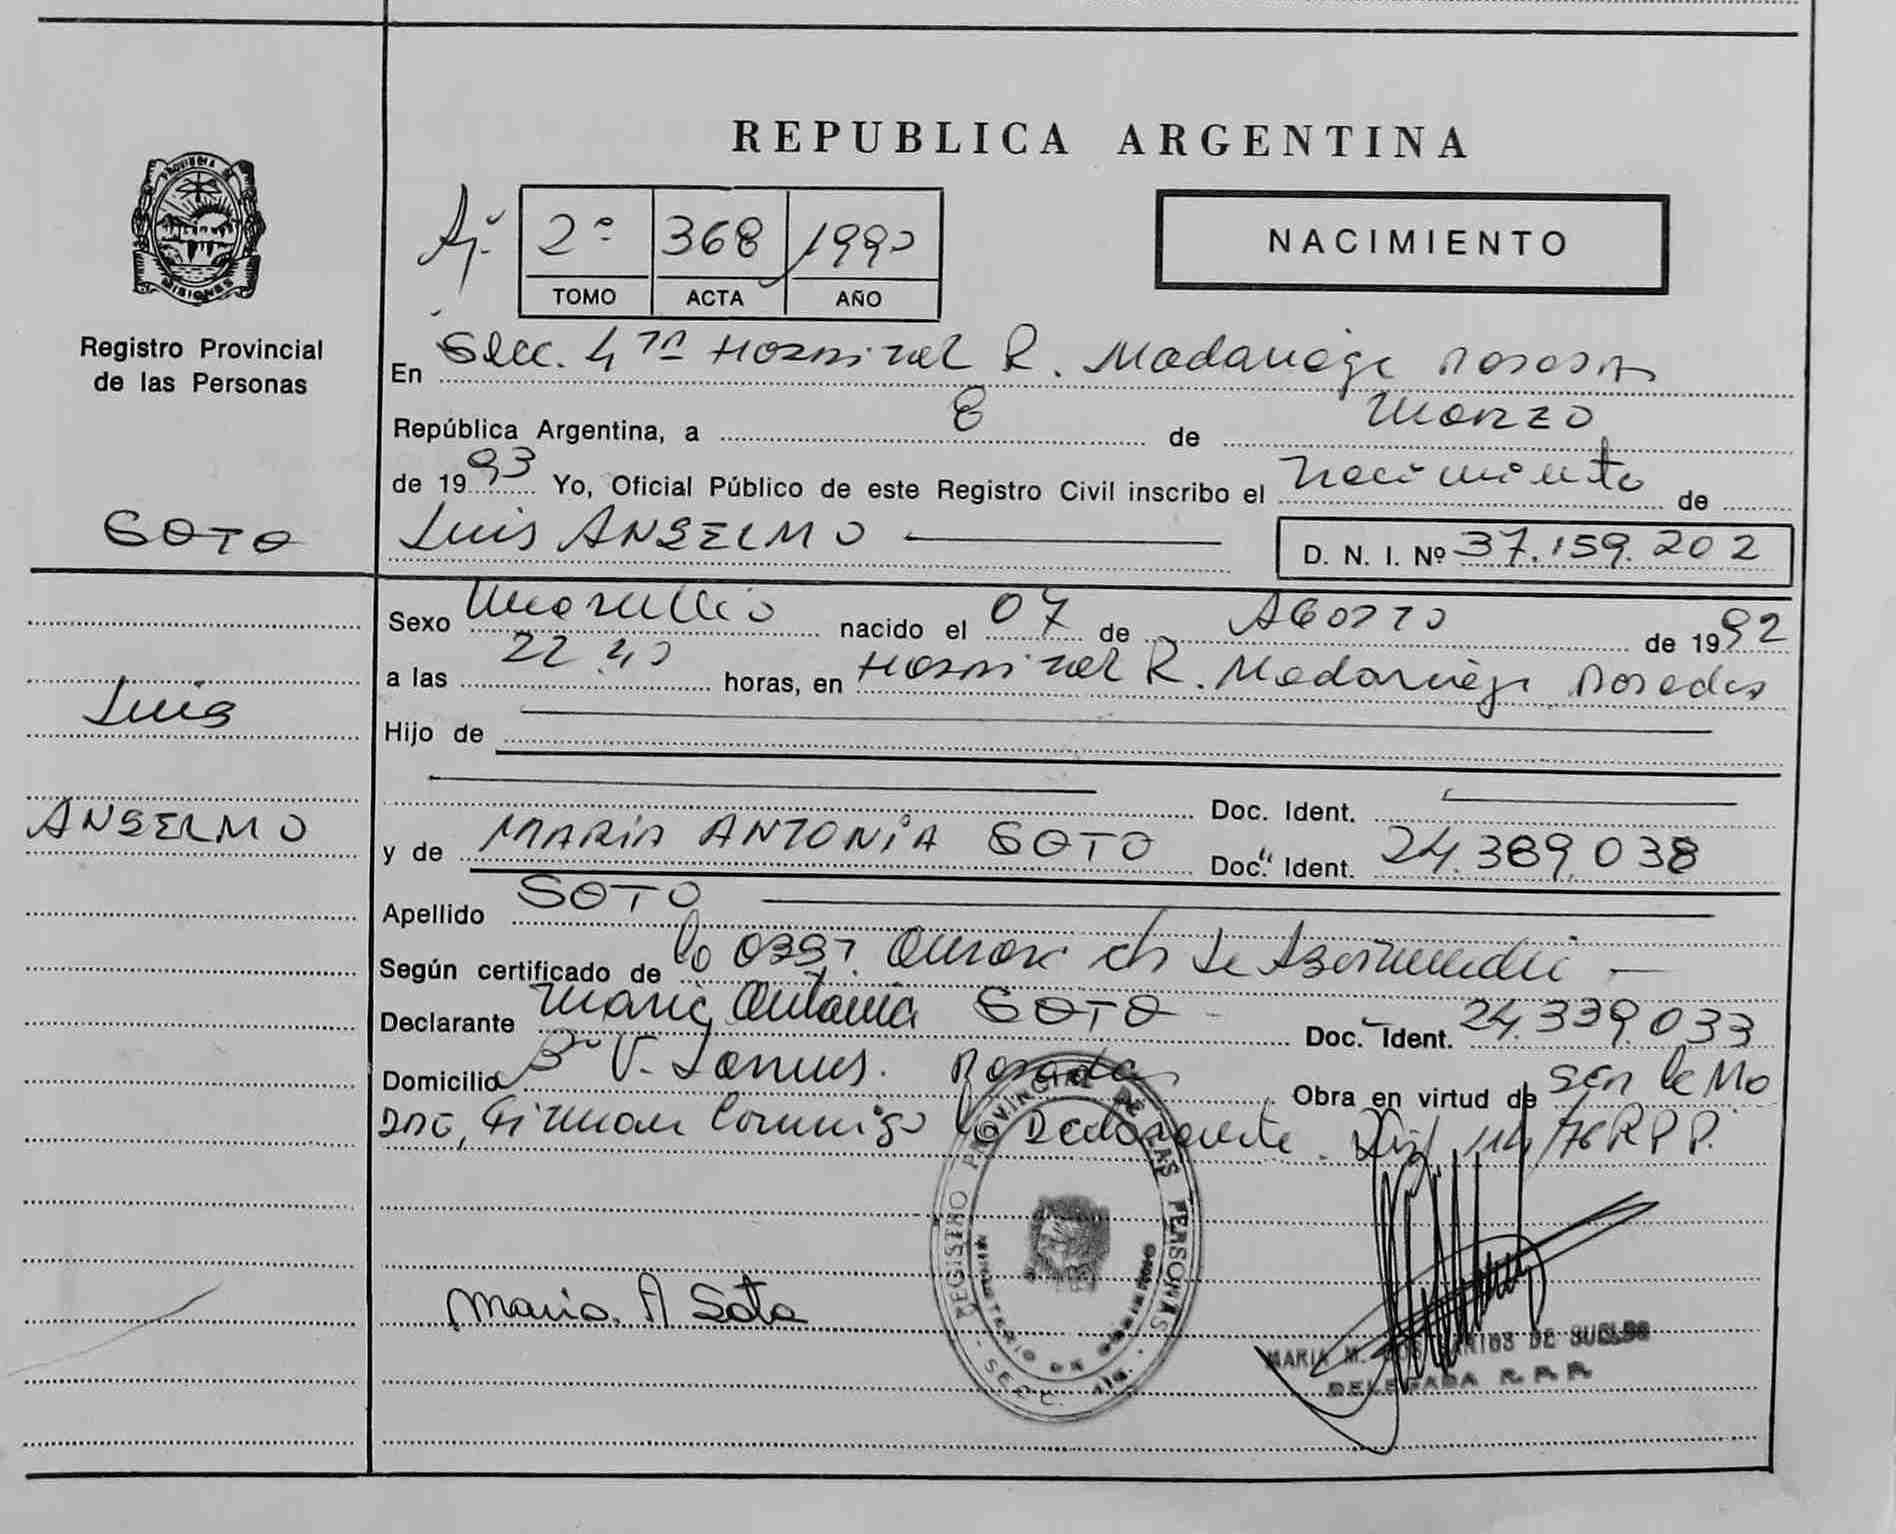 REPUBLICA ARGENTINA
PROVINCIA DE MISIONES
Registro Provincial
de las Personas
2º 368 1992
TOMO ACTA AÑO
NACIMIENTO
En Secc. 4ta Hospital R. Madariaga Posadas
República Argentina, a 8 de Marzo
de 1993 Yo, Oficial Público de este Registro Civil inscribo el Nacimiento de
SOTO
Luis ANSELMO
D. N. I. Nº 37.159.202
Sexo Masculino nacido el 07 de AGOSTO de 1992
a las 22 40 horas, en Hospital R. Madariaga Posadas
Luis
Hijo de
Doc. Ident.
ANSELMO
y de MARIA ANTONIA SOTO Doc. Ident. 24.389.038
Apellido SOTO
Según certificado de
Declarante Maria Antonia SOTO Doc. Ident. 24.339.033
Domicilio Bº V. Lanus. Posadas Obra en virtud de ser la Ma
dre, Firman Conmigo la Declarante. 114/76 R.P.P.
REGISTRO PROVINCIAL DE LAS PERSONAS
MINISTERIO DE GOBIERNO
SECC. 4ta.
Maria. A Soto
MARIA M. DOS SANTOS DE SUELDO
DELEGADA R. P. P.